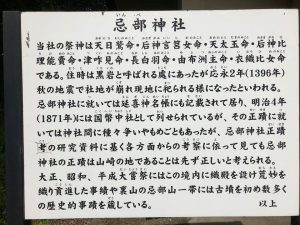 いんべ
忌部神社
当社の祭神は天日鷲命・后神言筥女命・天太玉命・后神比
理能賣命・津咋見命・長白羽命・由布洲主命・衣織比女命
である。往時は黒岩と呼ばれる処にあったが応永2年(1396年)
秋の地震で社地が崩れ現地に祀られる様になったといわれる。
忌部神社に就いては延喜神名帳にも記載されて居り、明治4年
(1871年)には国幣中社として列せられているが、その正蹟に就
いては神社間に種々争いやもめごともあったが、忌部神社正蹟
考の研究資料に基く各方面からの考察に依って見ても忌部神
社の正蹟は山崎の地であることは先ず正しいと考えられる。
大正、昭和、平成大嘗祭にはこの境内に織殿を設け荒妙を
織り貢進した事績や裏山の忌部山一帯には古墳を初め数多く
の歴史的資料を蔵している。
以上